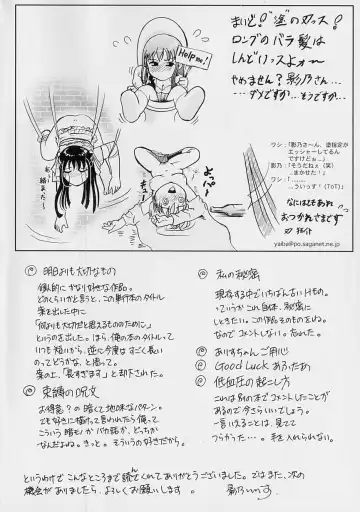 まいど!"塗"の刃ッス!
ロングのバラ髪は
しんどいッスよォ〜
やめません?影乃さん…
…ダメですか…そうですか…
Help me!
ワシ:「影乃さーん、塗指定が
エッシャーしてるん
ですけどぉ…」
影乃:「そうだねぇ(笑)
まかせた!」
ワシ:「………
…ういっす!(ToT)」
なにはともあれ
おつかれでまⓢ
yaiba@po.saganet.ne.jp
明日よりも大切なもの
個人的にかなり好きな作品。
どのくらいかと思うと、この単行本のタイトル
案を出した中に
「何よりも大切だと思えるもののために」
というのを出した。ほら、俺の本のタイトルって
いつも短いから、逆に今度はすごく長い
のってどうかな、と思って。
案の上、「長すぎます」と却下された。
束縛の呪文
お得意?の暗くて地味なパターン。
でも好きに描けって言われたら俺って
こういう暗モノか バカ話か、どっちか
なんだよね。きっと。そういうの好きだから。
私の秘密
現存する中でいちばん古いHもの。
っていうかこれ自体、秘密に
しときたい。この作品そのものをね。
なのでコメントしない。忘れた。
ありすちゃんご用心
Good Luck あふたぁ
低血圧の起こし方
これは別の本でコメントしたことが
あるので今さらいいでしょう。
…言えることは、見てて
つらかった…。手を入れられない。
というわけで こんなところまで読んでくれてありがとうございました。ではまた、次の
機会がありましたら、よろしくお願いします。